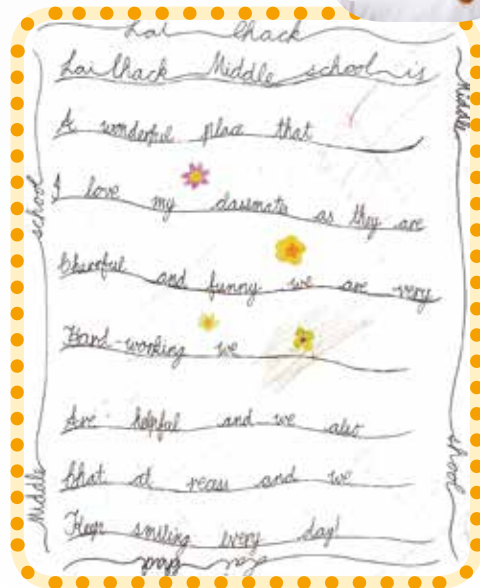 Lai Chack
Lai Chack Middle school is
A wonderful place that
I love my classmates as they are
Cheerful and funny we are very
Hard-working we
Are helpful and we also
Chat at recess and we
Keep smiling every day!
Middle
school
Middle
school
Lai Chack